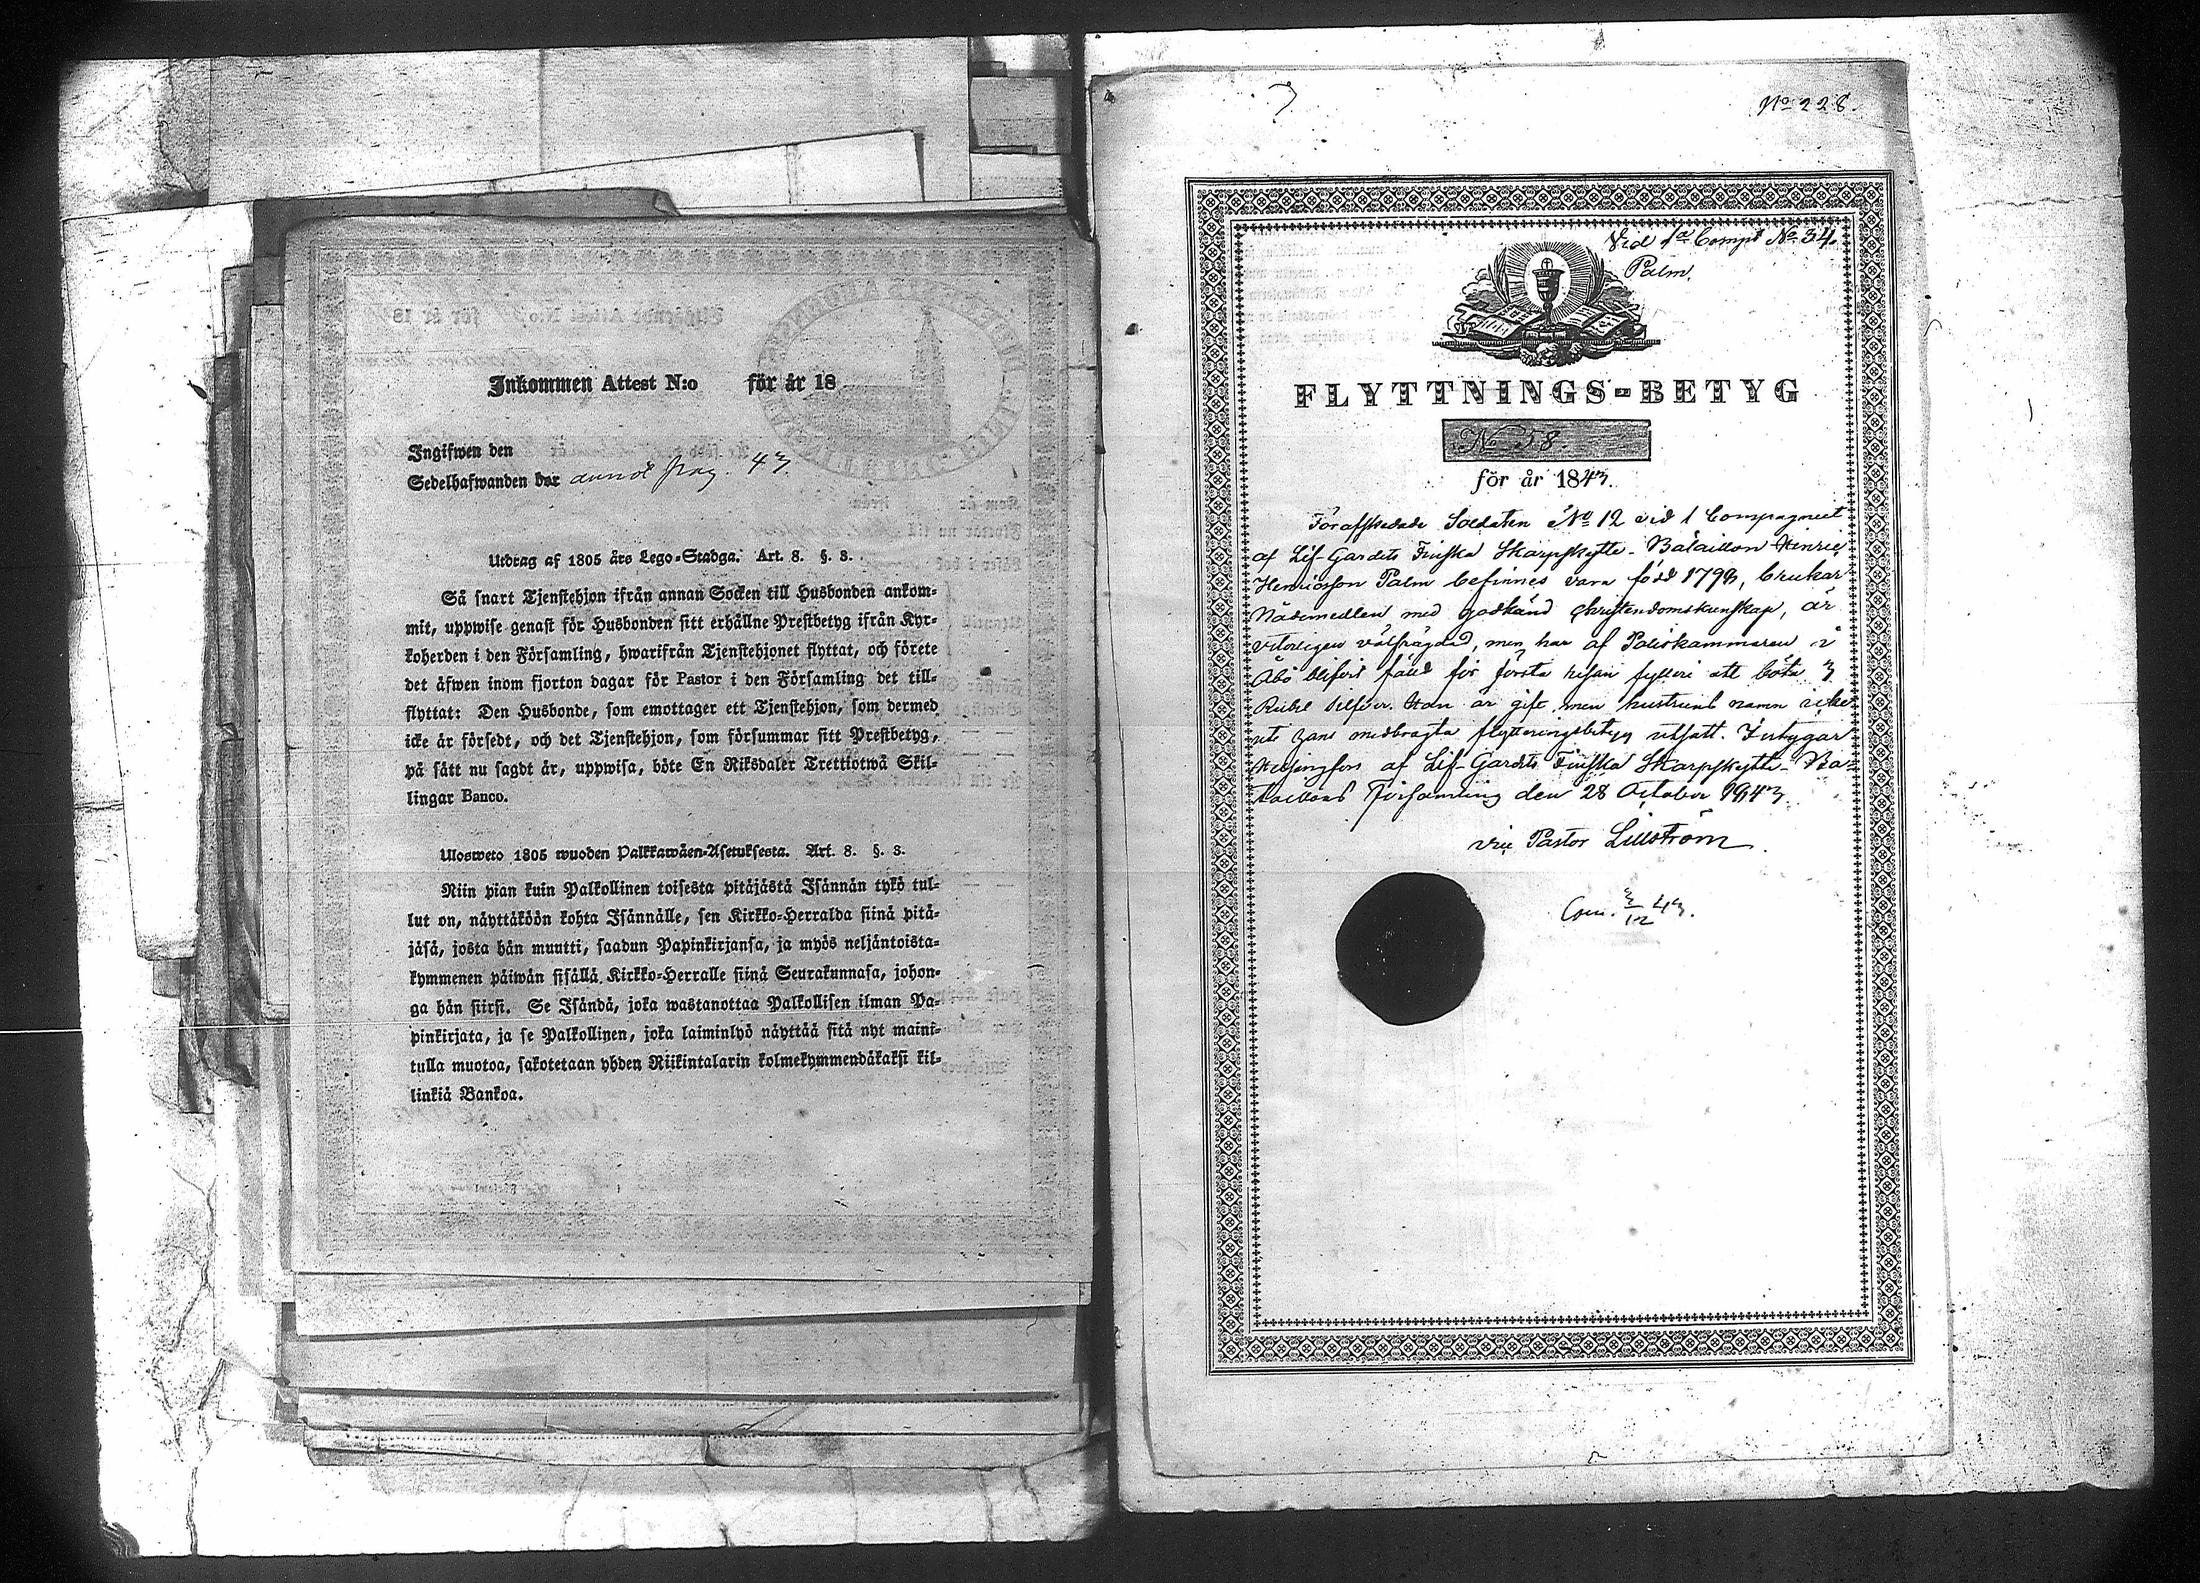 Inkommen Attest N:o för år 18
Ingifwen den
Sedelhafwanden bor annot pag. 43
Utdrag af 1805 års Lego-Stadga. Art. 8. §. 3.
Så snart Tjenstehjon ifrån annan Socken till Husbonden ankom-
mit, uppwise genast för Husbonden sitt erhållne Prestbetyg ifrån Kyr-
koherden i den Församling, hwarifrån Tjenstehjonet flyttat, och förete
det äfwen inom fjorton dagar för Pastor i den Församling det till-
flyttat: Den Husbonde, som emottager ett Tjenstehjon, som dermed
icke är försedt, och det Tjenstehjon, som försummar sitt Prestbetyg,
på sätt nu sagdt är, uppwisa, böte En Riksdaler Trettiotwå Skil-
lingar Banco.
Ulosweto 1805 wuoden Palkkawäen-Asetuksesta. Art. 8. §. 3.
Niin pian kuin Palkollinen toisesta pitäjästä Isännän tykö tul-
lut on, näyttäköön kohta Isännälle, sen Kirkko-Herralda siinä pitä-
jäsä, josta hän muutti, saadun Papinkirjansa, ja myös neljäntoista-
kymmenen päiwän sisällä Kirkko-Herralle siinä Seurakunnasa, johon-
ga hän siirsi. Se Isändä, joka wastanottaa Palkollisen ilman Pa-
pinkirjata, ja se Palkollinen, joka laiminlyö näyttää sitä nyt maini-
tulla muotoa, sakotetaan yhden Riikintalarin kolmekymmendäkaksi kil-
linkiä Bankoa.
No 228.
Vid 1a Comps No 34.
Palm.
FLYTTNINGS-BETYG
No 58.
för år 1843.
Förafskedade Soldaten No 12 vid 1 Compagniet
af Lif-Gardets Finska Skarpskytte-Bataillon Henric
Henricsson Palm befinnes vara född 1798, brukar
Nådemedlen, med godkänd christendomskunskap, är
vitterligen välfrägdad, men har af Poliskammaren i
Åbo blifvit fälld för första resan fylleri att böta 3
Rubel silfver. Han är gift, men hustruns namn icke
uti hans medbragta flyttningsbetyg utsatt. Intygar
Helsingfors af Lif-Gardets Finska Skarpskytte-Ba-
taillons Församling den 28 October 1843.
vice Pastor Lillström.
Com. 3/12 43.